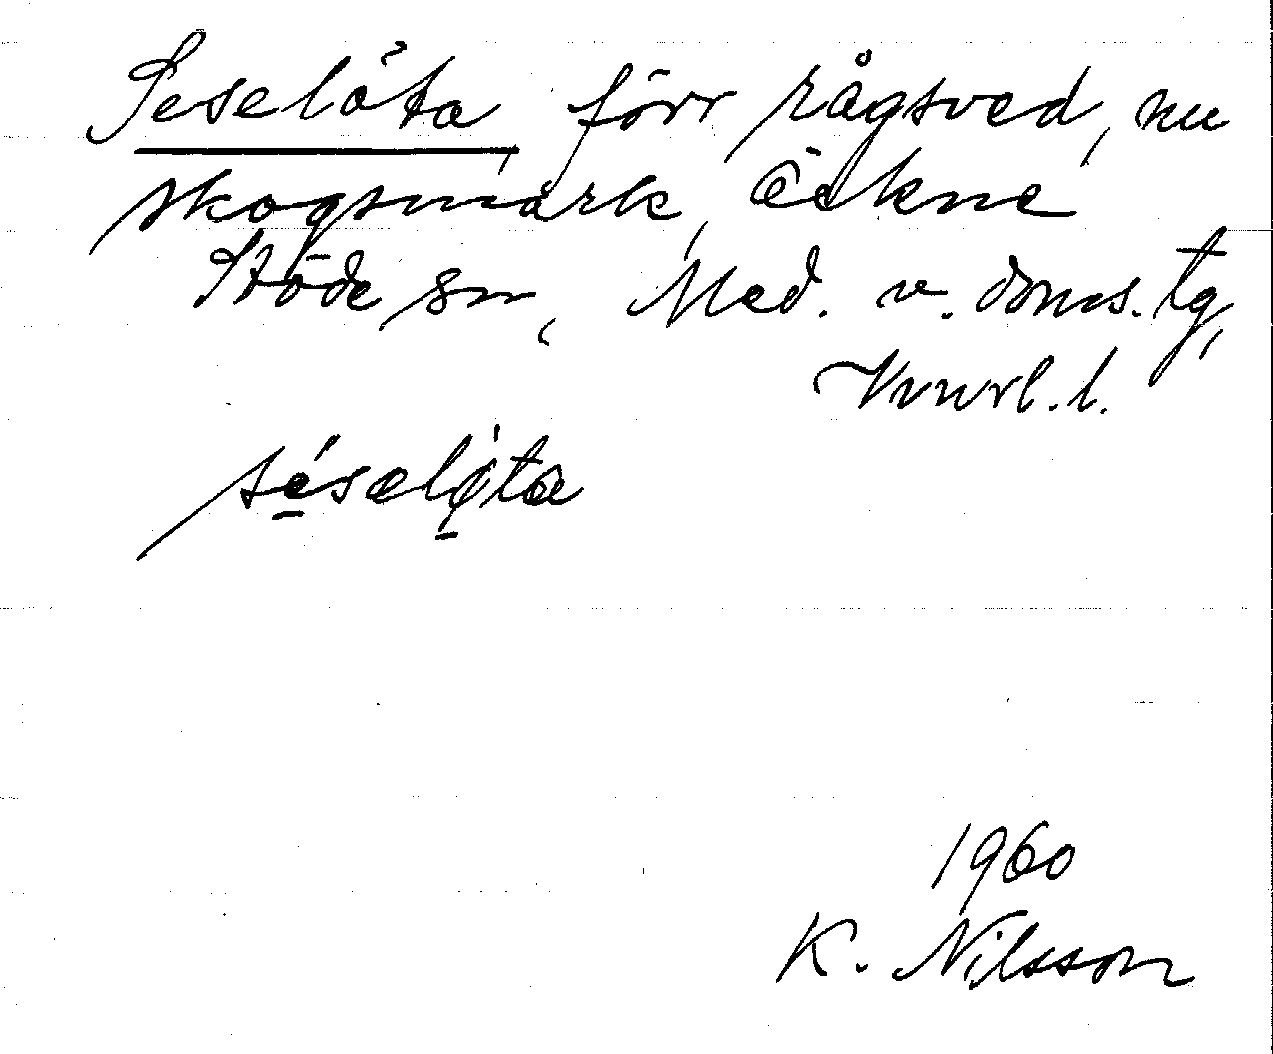 Seselöta, förr rågsved, nu
skogsmark, Öckne
Stöde sn, Med. v. doms. tg,
Vnrl. l.
1960
K. Nilsson